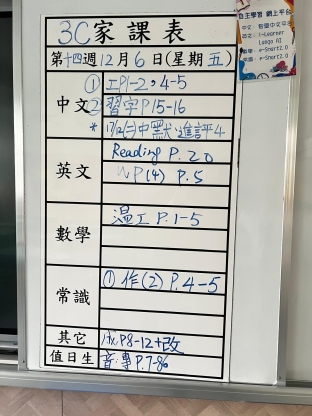 3C家課表
自主學習 網上平台
中文：智愛中文平台
英文：i-Learner
Lexgo AI
數學：e-Smart2.0
常識：e-Smart2.0
第十四週12月6日(星期五)
中文
① 工P1-2，4-5
② 習字P15-16
* 17/12(二)中默、進評4
英文
Reading P.20
WP(4) P.5
數學
溫工 P.1-5
常識
① 作(2) P.4-5
其它
P8-12+改
值日生
音:專P.7-8